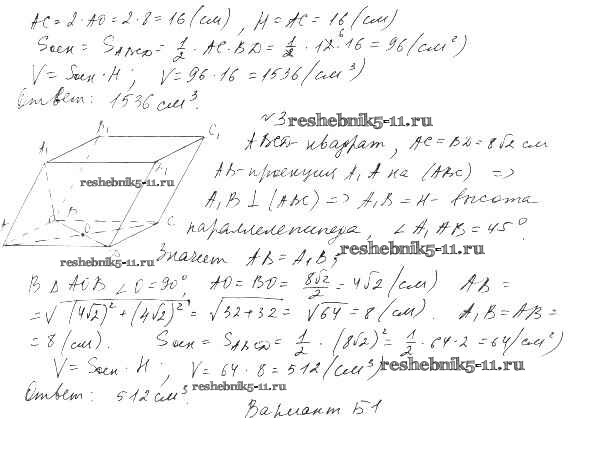 AC = 2 · AO = 2 · 8 = 16 (см), H = AC = 16 (см)
Sосн = SABCD = 1/2 · AC · BD = 1/2 · 12 · 16 = 96 (см²)
V = Sосн · H; V = 96 · 16 = 1536 (см³)
Ответ: 1536 см³.
№3 reshebnik5-11.ru
ABCD - квадрат, AC = BD = 8√2 см
AB - проекция A₁A на (ABC) =>
A₁B ⊥ (ABC) => A₁B = H - высота
параллелепипеда, ∠A₁AB = 45°.
Значит AB = A₁B reshebnik5-11.ru
D₁ C₁
A₁ B₁
reshebnik5-11.ru
D C
O
reshebnik5-11.ru
В △ AOB ∠O = 90°, AO = BO = 8√2/2 = 4√2 (см) AB =
= √(4√2)² + (4√2)² = √32 + 32 = √64 = 8 (см). A₁B = AB =
= 8 (см). Sосн = SABCD = 1/2 · (8√2)² = 1/2 · 64 · 2 = 64 (см²)
V = Sосн · H; V = 64 · 8 = 512 (см³) reshebnik5-11.ru
Ответ: 512 см³. reshebnik5-11.ru
Вариант Б1